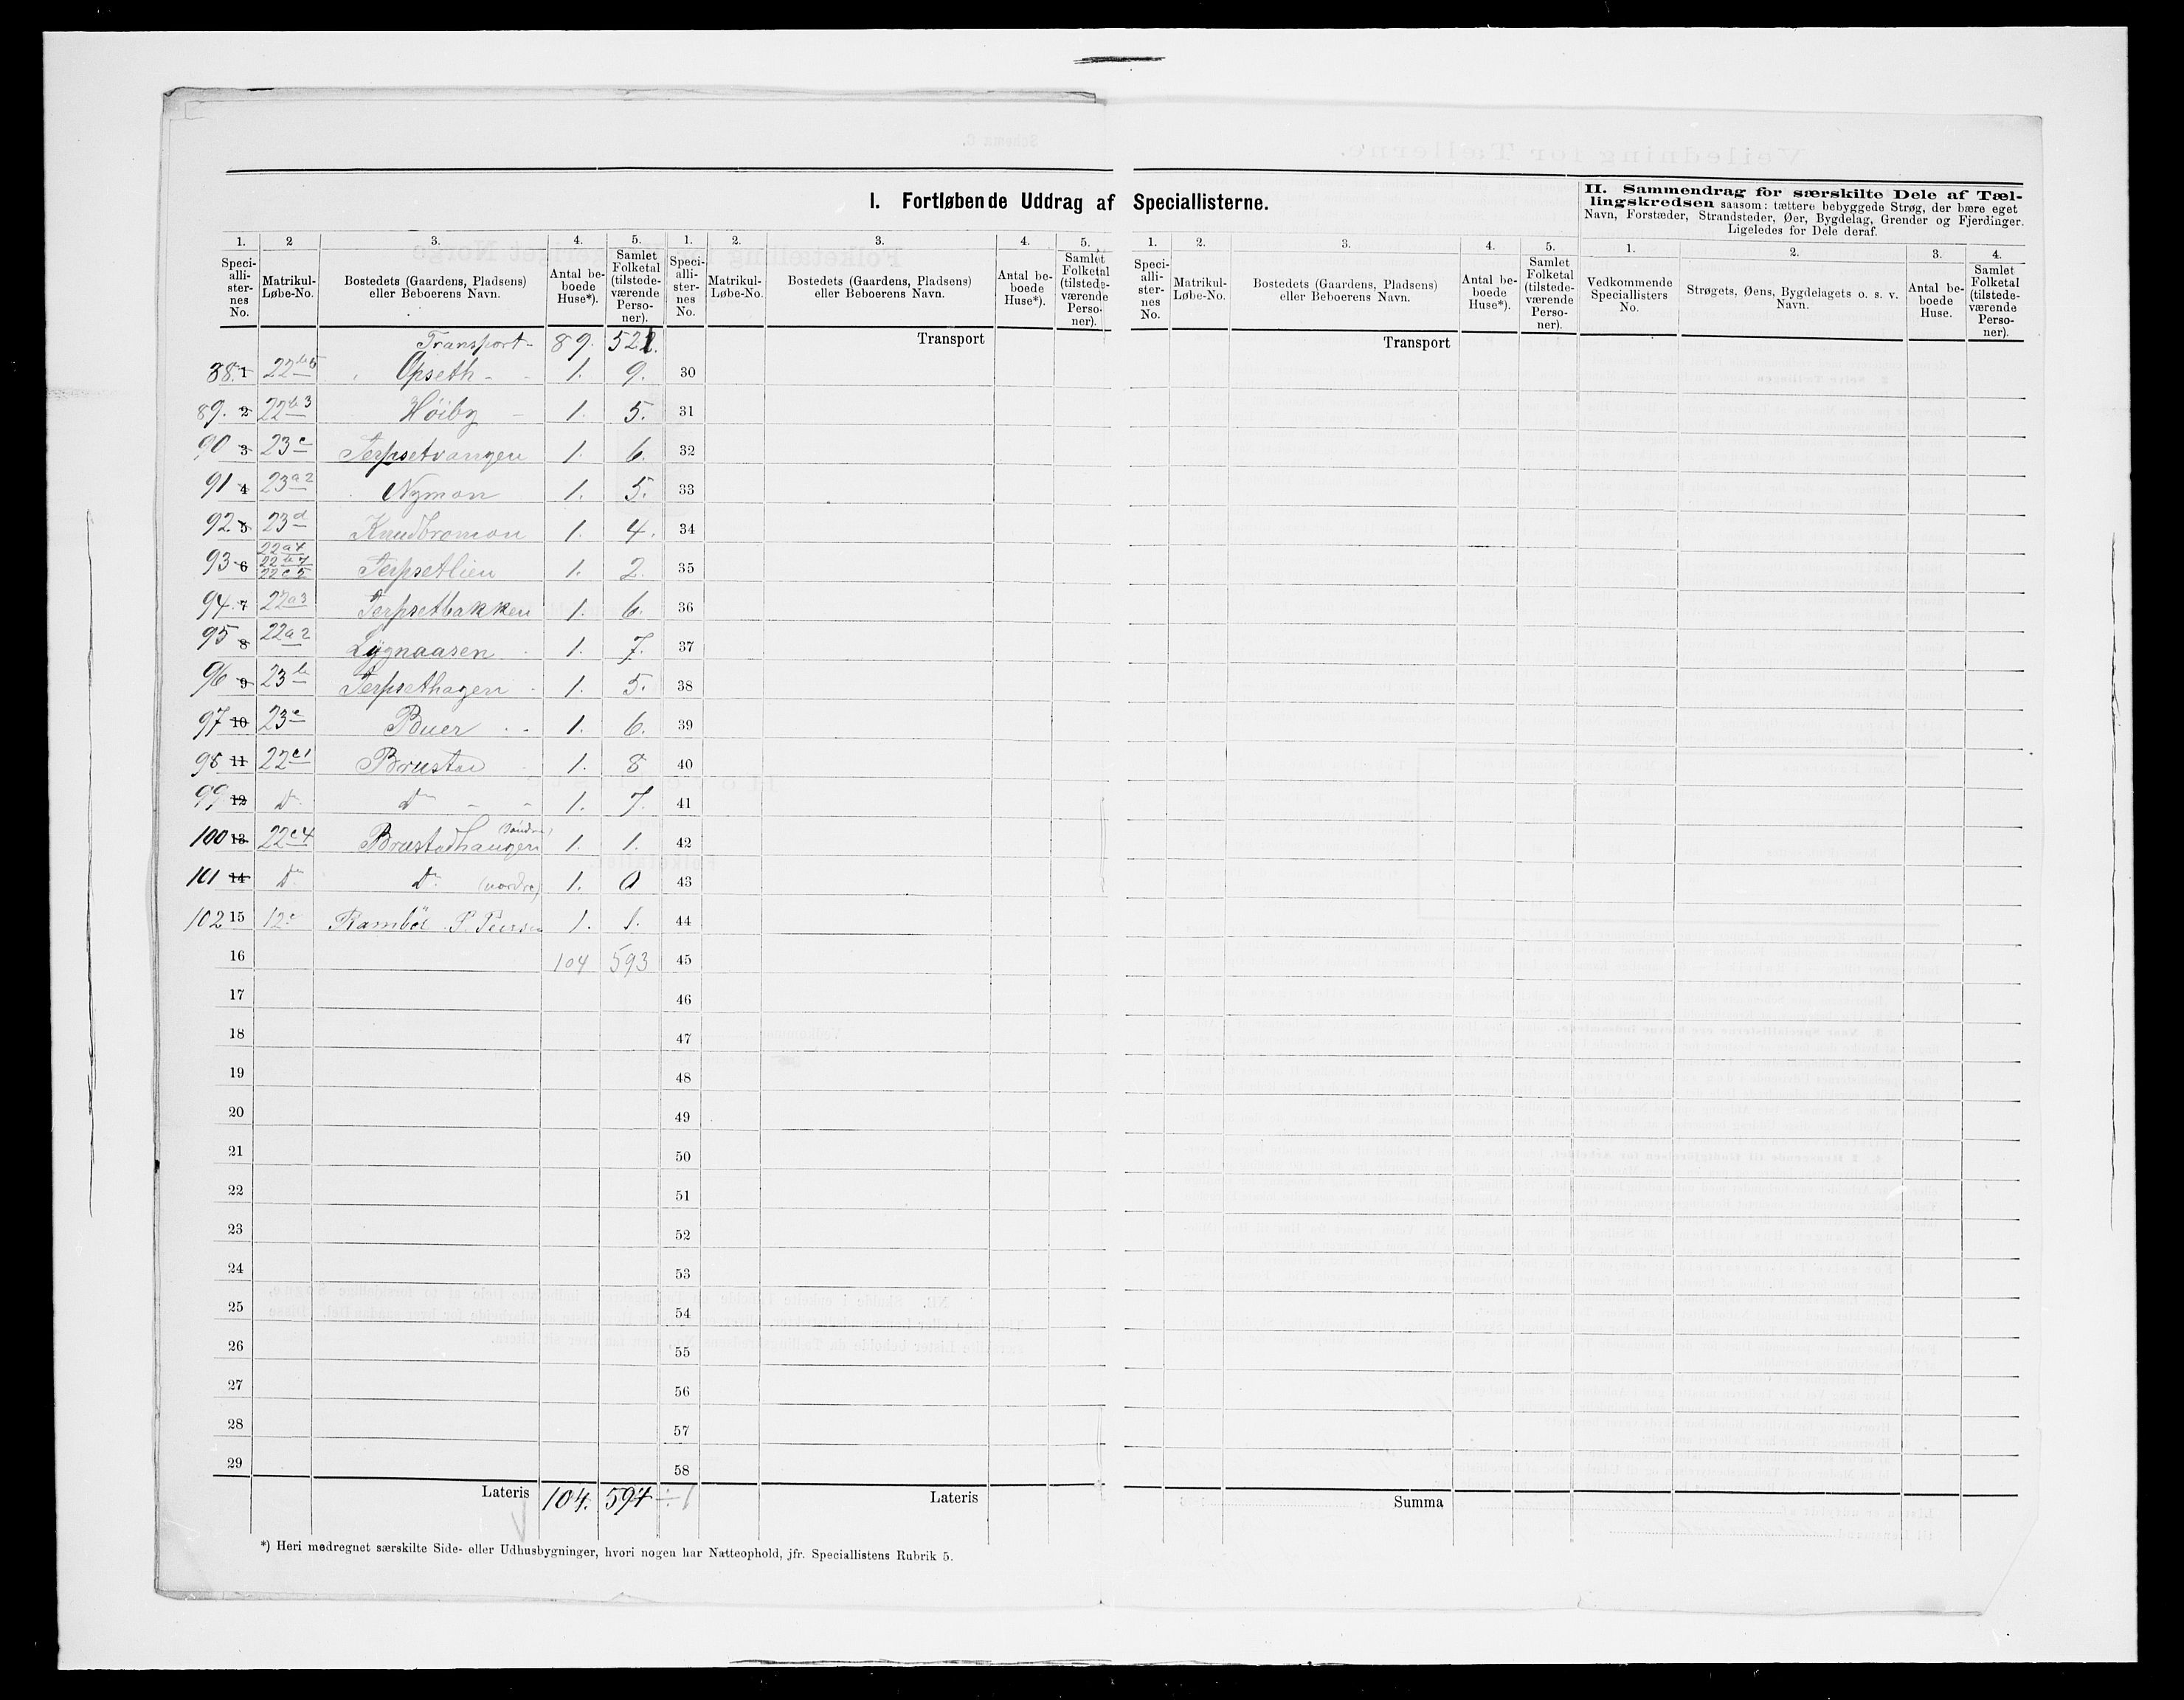 I. Fortløbende Uddrag af Speciallisterne.
II. Sammendrag for særskilte Dele af Tæl-
lingskredsen saasom: tættere bebyggede Strøg, der bære eget
Navn, Forstæder, Strandsteder, Øer, Bygdelag, Grender og Fjerdinger.
Ligeledes for Dele deraf.
1. 2 3. 4. 5. 1. 2. 3. 4. 5. 1. 2. 3. 4. 5. 1. 2. 3. 4.
Speci-alli-ster-nes No. Matrikul-Løbe-No. Bostedets (Gaardens, Pladsens) eller Beboerens Navn. Antal be-boede Huse*). Samlet Folketal (tilstede-værende Perso-ner).
Speci-alli-ster-nes No. Matrikul-Løbe-No. Bostedets (Gaardens, Pladsens) eller Beboerens Navn. Antal be-boede Huse*). Samlet Folketal (tilstede-værende Perso-ner).
Speci-alli-ster-nes No. Matrikul-Løbe-No. Bostedets (Gaardens, Pladsens) eller Beboerens Navn. Antal be-boede Huse*). Samlet Folketal (tilstede-værende Perso-ner).
Vedkommende Speciallisters No. Strøgets, Øens, Bygdelagets o. s. v. Navn. Antal be-boede Huse. Samlet Folketal (tilstede-værende Perso-ner).
Transport- 89. Transport Transport
88. 1 22b5 Opseth - 1. 9. 30
89. 2 22b3 Höiby - 1. 5. 31
90 3 23c Terpsetvangen 1. 6. 32
91 4 23a2 Nymon 1. 5. 33
92. 5 23d Knudbromon 1. 4. 34
93 6 22a4 22b7 22c5 Terpsetlien 1. 2. 35
94. 7 22a3 Terpsetbakken 1. 6. 36
95 8 22a2 Lygnaasen 1. 7. 37
96 9 23b Terpsethagen 1. 5. 38
97 10 23e Buer 1. 6. 39
98 11 22c1 Brustad 1. 8 40
99 12 do do - - 1. 7. 41
100 13 22c4 Brustadhaugen (söndre) 1. 1. 42
101 14 do do (nordre) 1. 0 43
102 15 Ramböl P. 1. 1. 44
16 104 593 45
17 46
18 47
19 48
20 49
21 50
22 51
23 52
24 53
25 54
26 55
27 56
28 57
29 58
Lateris 104. 594 ÷ 1 Lateris Summa
*) Heri medregnet særskilte Side- eller Udhusbygninger, hvori nogen har Natteophold, jfr. Speciallistens Rubrik 5.